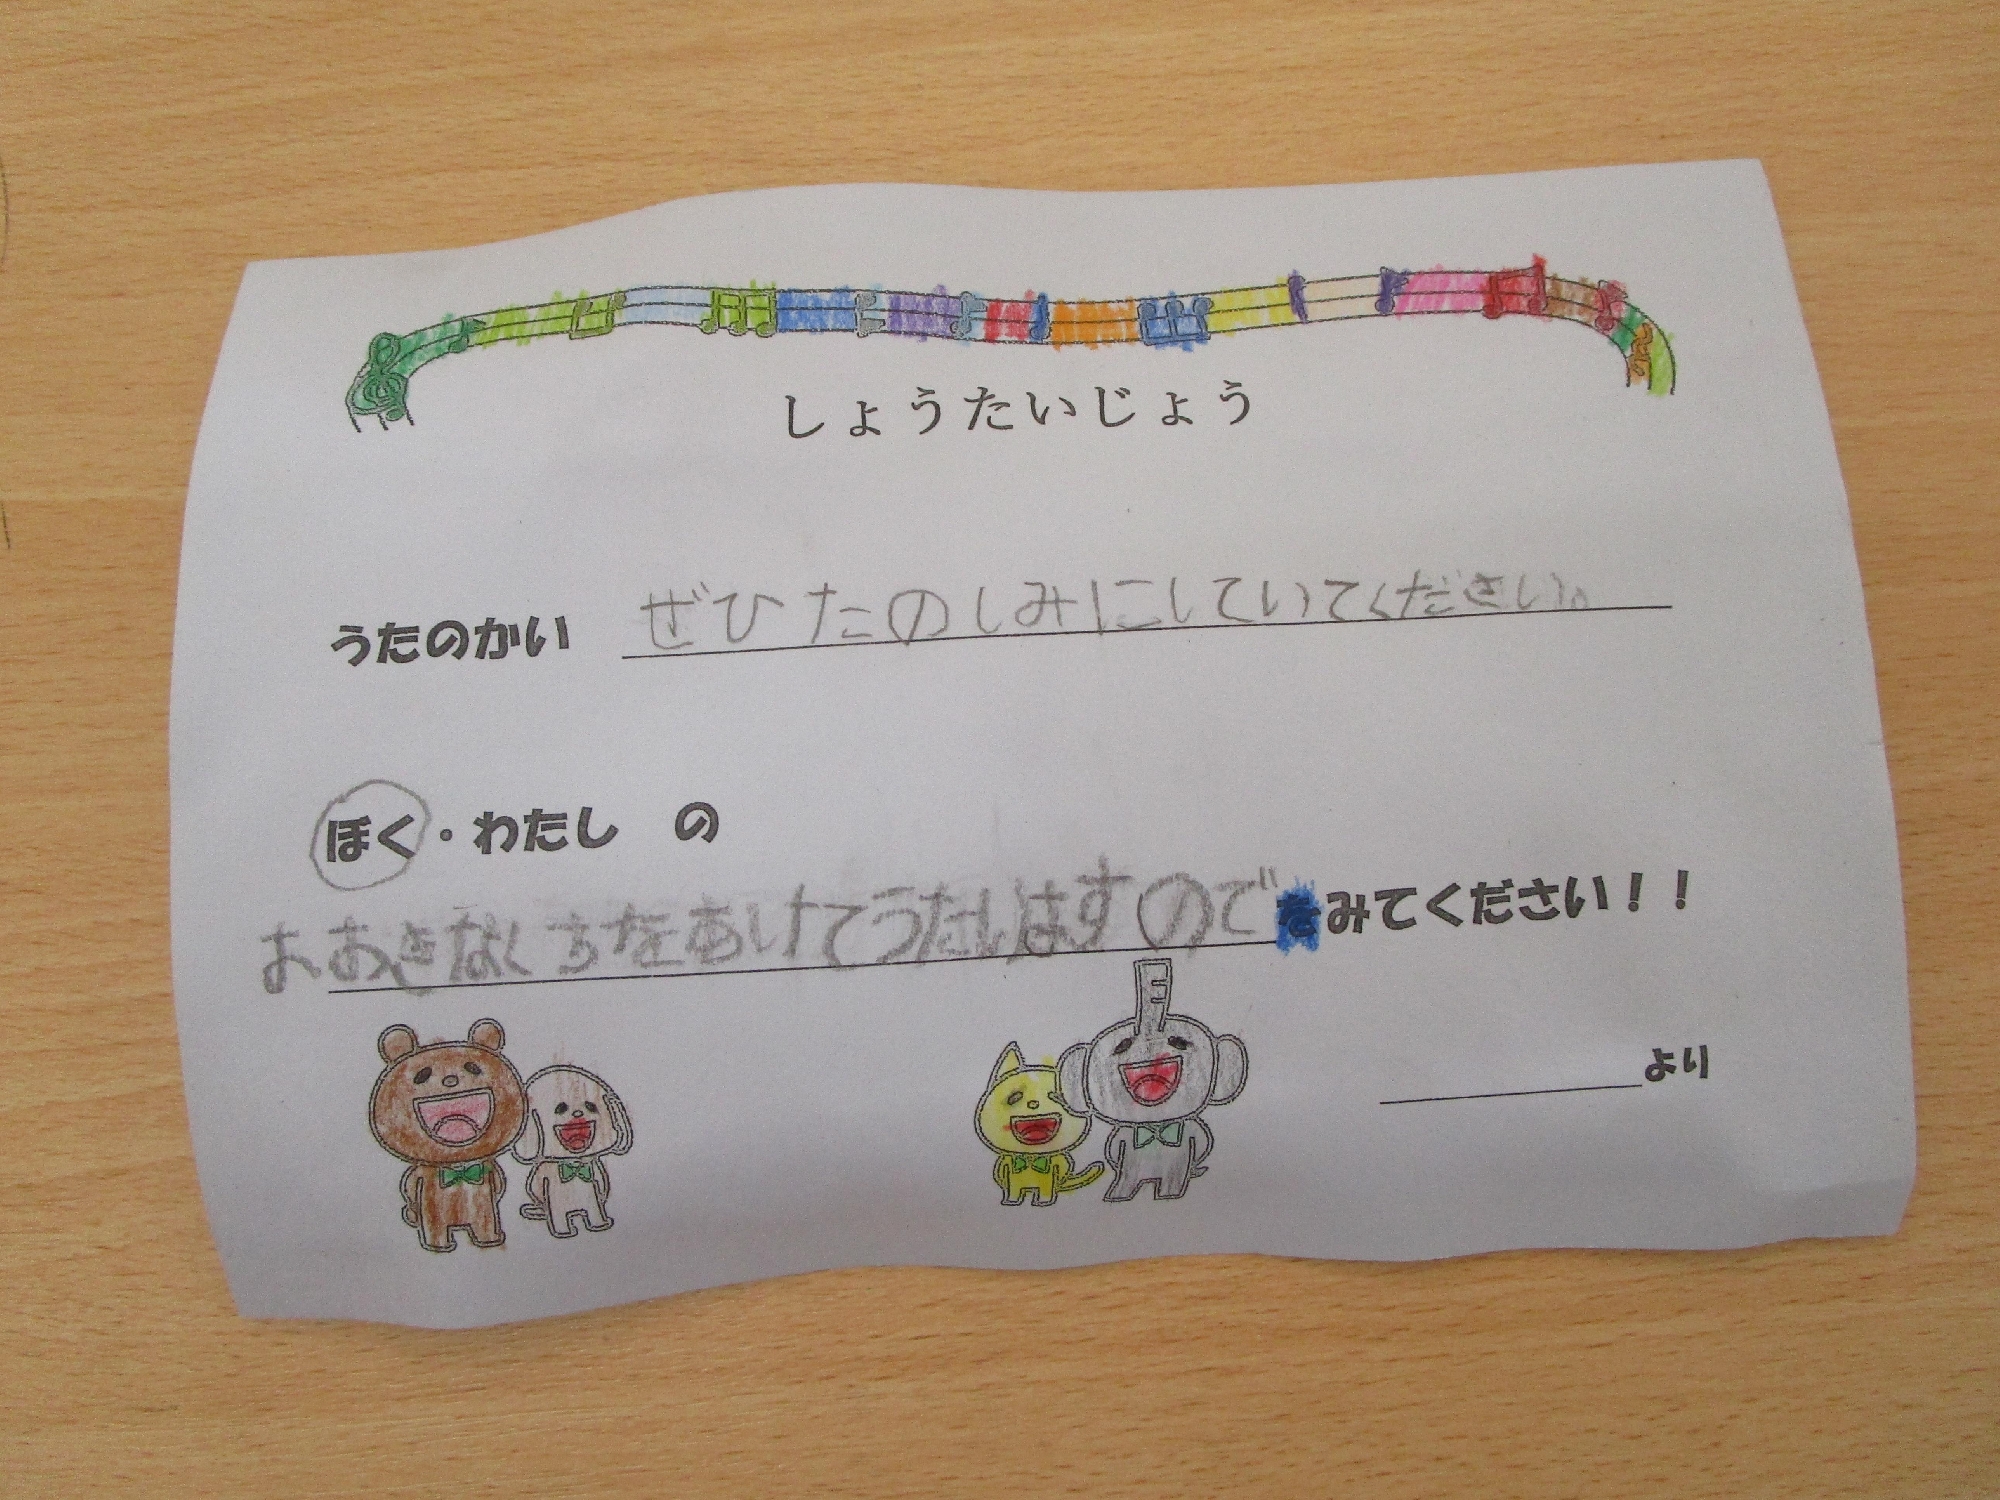 しょうたいじょう
うたのかい ぜひたのしみにしていてください。
ぼく・わたし の
おおきなくちをあけてうたいはすのでをみてください！！
より